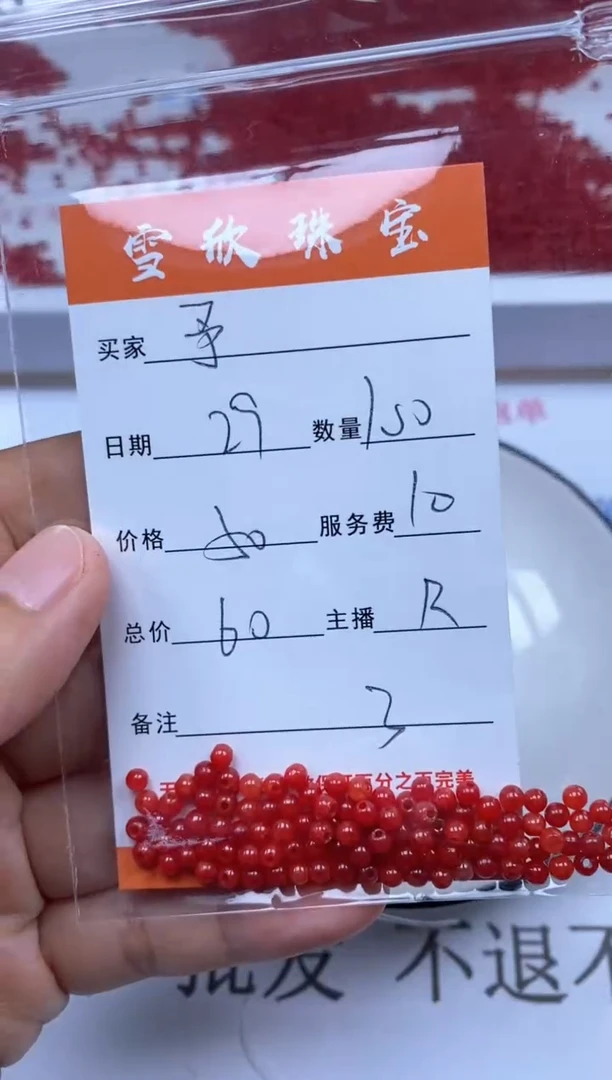 雪欣珠宝
买家 予
日期 29 数量 150
价格 50 服务费 10
总价 60 主播 R
备注 3
百分之百完美
批发 不退不